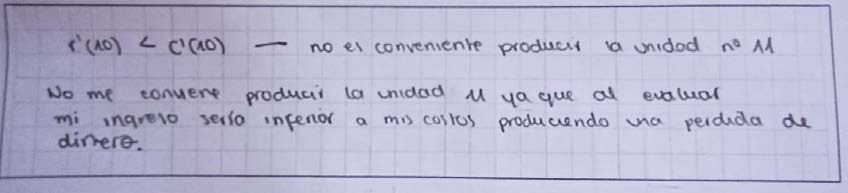 r'(10) < c'(10) — no es conveniente producir la unidad nº 11
No me conviene producir la unidad 11 ya que al evaluar
mi ingreso sería inferior a mis costos produciendo una perdida de
dinero.